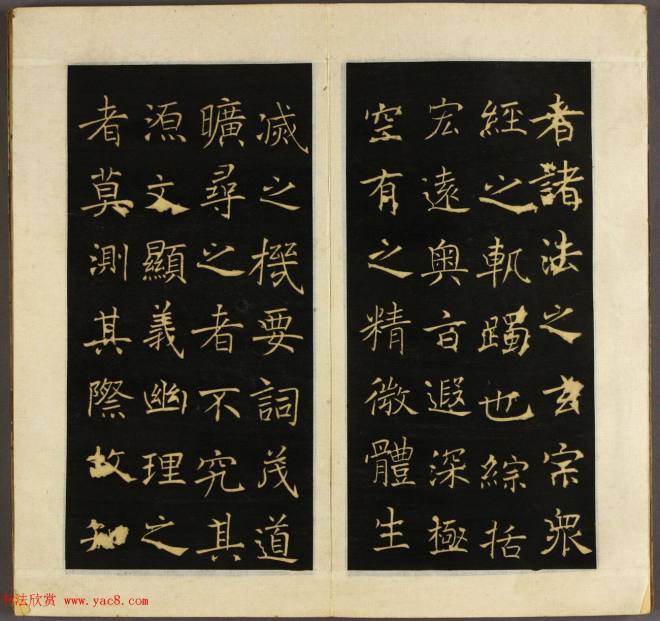 者諸法之玄宗衆
經之軌躅也綜括
宏遠奧旨遐深極
空有之精微體生
滅之機要詞茂道
曠尋之者不究其
源文顯義幽理之
者莫測其際故知
书法欣赏 www.yac8.com